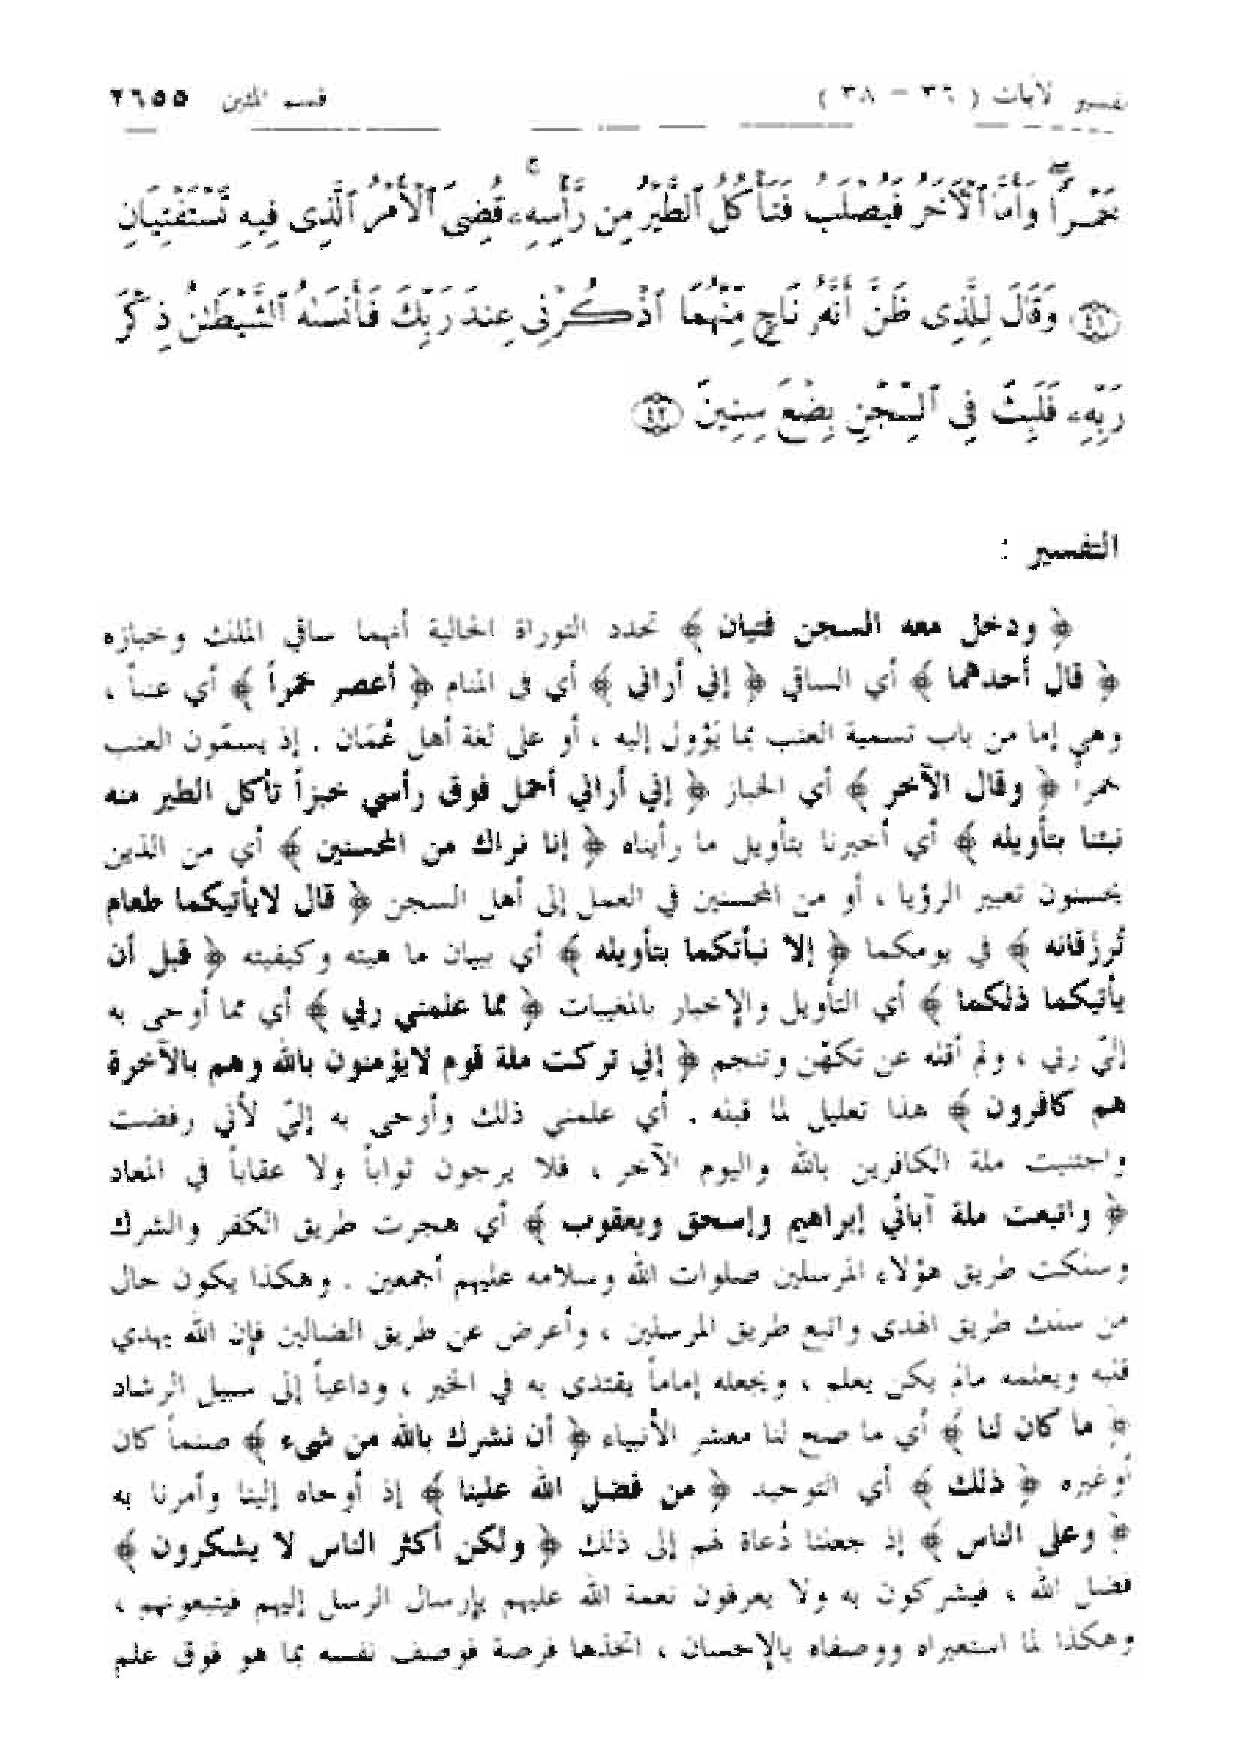 تفسير الآيات ( ٣٦ – ٣٨ ) قسم المئين ٢٦٥٥
خَمْرًا وَأَمَّا ٱلْآخَرُ فَيُصْلَبُ فَتَأْكُلُ ٱلطَّيْرُ مِن رَّأْسِهِۦ قُضِىَ ٱلْأَمْرُ ٱلَّذِى فِيهِ تَسْتَفْتِيَانِ
﴿٤١﴾ وَقَالَ لِلَّذِى ظَنَّ أَنَّهُۥ نَاجٍ مِّنْهُمَا ٱذْكُرْنِى عِندَ رَبِّكَ فَأَنسَىٰهُ ٱلشَّيْطَٰنُ ذِكْرَ
رَبِّهِۦ فَلَبِثَ فِى ٱلسِّجْنِ بِضْعَ سِنِينَ ﴿٤٢﴾
التفسير :
﴿ ودخل معه السجن فتيان ﴾ تحدد التوراة الحالية أنهما ساقي الملك وخبازه
﴿ قال أحدهما ﴾ أي الساقي ﴿ إني أراني ﴾ أي في المنام ﴿ أعصر خمراً ﴾ أي عنباً ،
وهي إما من باب تسمية العنب بما يؤول إليه ، أو على لغة أهل عُمَان . إذ يسمّون العنب
خمراً ﴿ وقال الآخر ﴾ أي الخباز ﴿ إني أراني أحمل فوق رأسي خبزاً تأكل الطير منه
نبئنا بتأويله ﴾ أي أخبرنا بتأويل ما رأيناه ﴿ إنا نراك من المحسنين ﴾ أي من الذين
يحسنون تعبير الرؤيا ، أو من المحسنين في العمل إلى أهل السجن ﴿ قال لايأتيكما طعام
تُرزقانه ﴾ في يومكما ﴿ إلا نبأتكما بتأويله ﴾ أي ببيان ما هيته وكيفيته ﴿ قبل أن
يأتيكما ذلكما ﴾ أي التأويل والإخبار بالمغيبات ﴿ مما علمني ربي ﴾ أي مما أوحى به
إليّ ربي ، ولم أقله عن تكهّن وتنجم ﴿ إني تركت ملة قوم لايؤمنون بالله وهم بالآخرة
هم كافرون ﴾ هذا تعليل لما قبله . أي علمني ذلك وأوحى به إليّ لأني رفضت
واجتنبت ملة الكافرين بالله واليوم الآخر ، فلا يرجون ثواباً ولا عقاباً في المعاد
﴿ واتبعت ملة آبائي إبراهيم وإسحق ويعقوب ﴾ أي هجرت طريق الكفر والشرك
وسلكت طريق هؤلاء المرسلين صلوات الله وسلامه عليهم أجمعين . وهكذا يكون حال
من سلك طريق الهدى واتبع طريق المرسلين ، وأعرض عن طريق الضالين فإن الله يهدي
قلبه ويعلمه مالم يكن يعلم ، ويجعله إماماً يقتدى به في الخير ، وداعياً إلى سبيل الرشاد
﴿ ما كان لنا ﴾ أي ما صح لنا معشر الأنبياء ﴿ أن نشرك بالله من شيء ﴾ صنماً كان
أوغيره ﴿ ذلك ﴾ أي التوحيد ﴿ من فضل الله علينا ﴾ إذ أوحاه إلينا وأمرنا به
﴿ وعلى الناس ﴾ إذ جعلنا دُعاة لهم إلى ذلك ﴿ ولكن أكثر الناس لا يشكرون ﴾
فضل الله ، فيشركون به ولا يعرفون نعمة الله عليهم بإرسال الرسل إليهم فيتبعونهم ،
وهكذا لما استعبراه ووصفاه بالإحسان ، اتخذها فرصة فوصف نفسه بما هو فوق علم